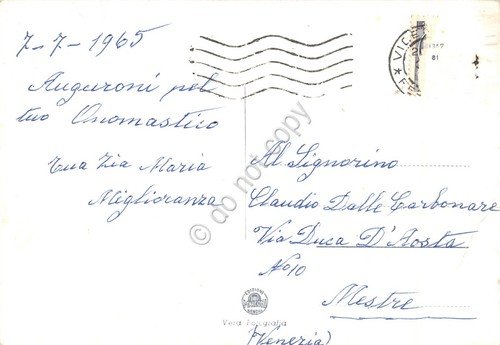 7-7-1965
Auguroni pel
tuo Onomastico
tua Zia Maria
Miglioranza
Al Signorino
Claudio Dalle Carbonare
Via Duca D'Aosta
No 10
Mestre
(Venezia)
Vera Fotografia
do not copy